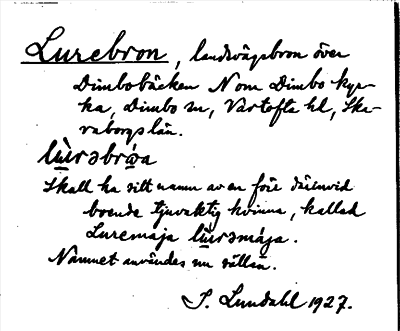 Lurebron, landsvägsbron över
Dimbobäcken N om Dimbo kyr-
ka, Dimbo sn, Vartofta hd, Ska-
raborgs län.
lùrəbrớa
Skall ha sitt namn av en före därinvid
boende tjuvaktig kvinna, kallad
Luremaja lùrəmája.
Namnet användes nu sällan.
S. Lundahl 1927.